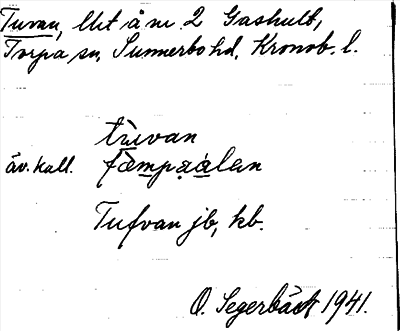 Tuvan, lht å nr. 2 Gashult,
Torpa sn, Sunnerbo hd, Kronob. l.
tùvan
äv. kall. fàmpaálen
Tufvan jb, kb.
O. Segerbäck 1941.